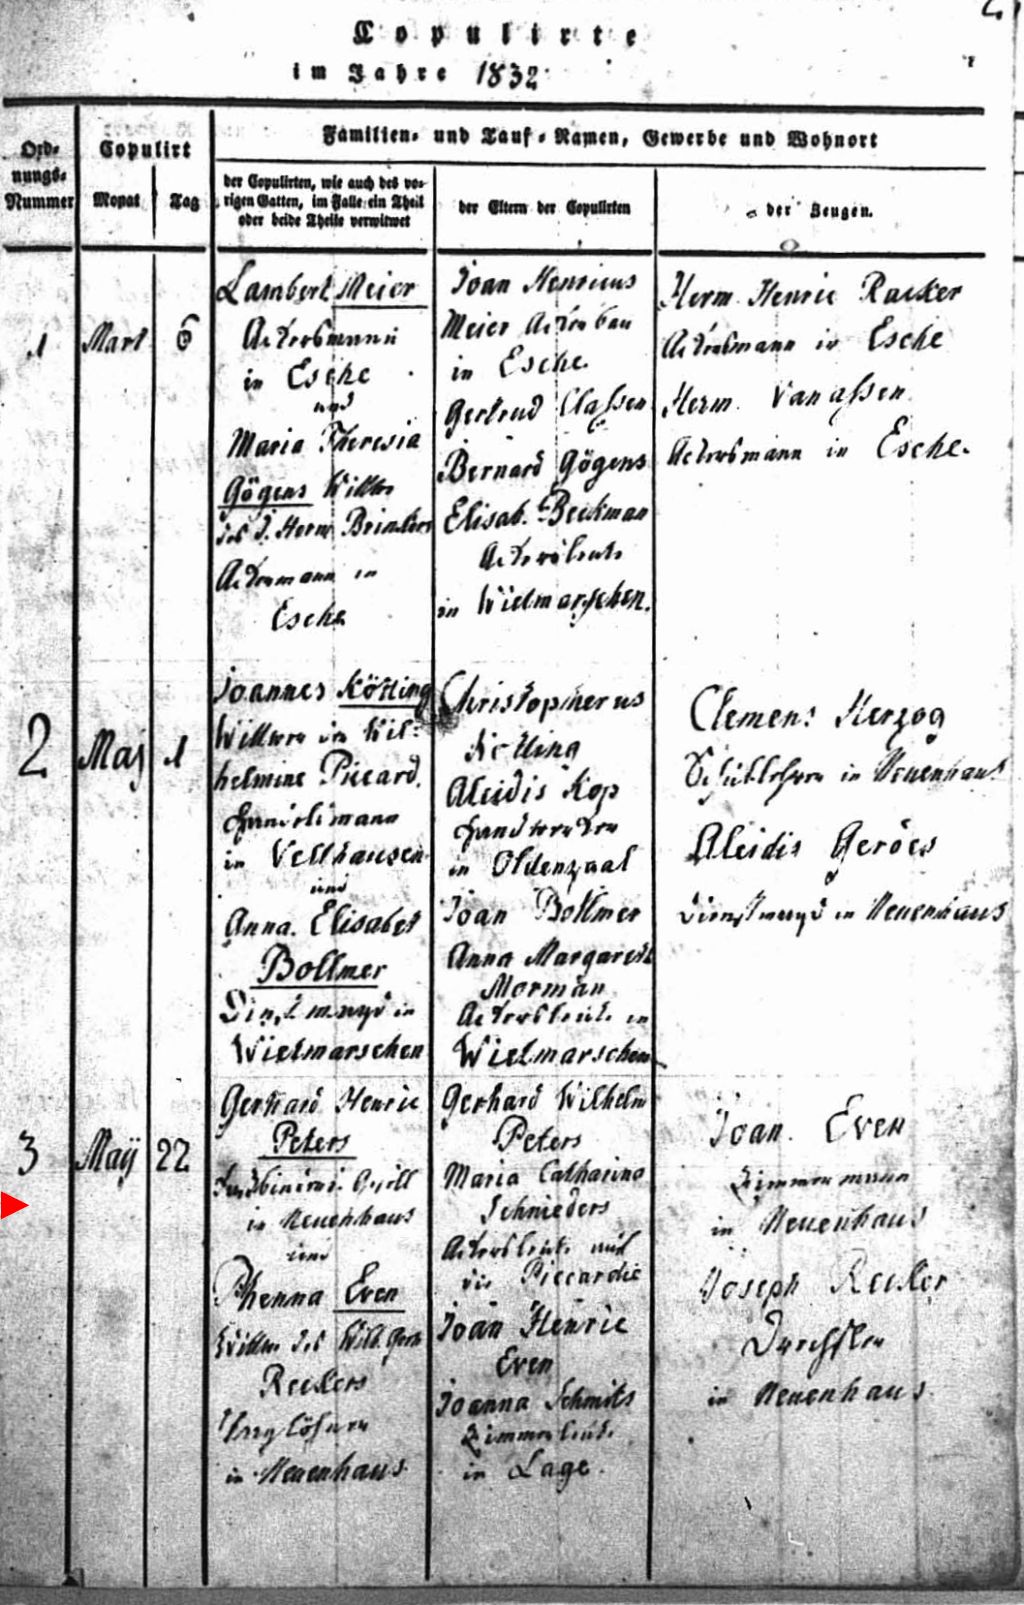 Copulirte
im Jahre 1832
Ord-
nungs-
Nummer
Copulirt
Monat
Tag
Familien- und Tauf-Namen, Gewerbe und Wohnort
der Copulirten, wie auch des vo-
rigen Gatten, im Falle ein Theil
oder beide Theile verwitwet
der Eltern der Copulirten
der Zeugen.
1
Mart
6
Lambert Meier
Ackersmann
in Esche
und
Maria Theresia
Gögens Wittwe
des J. Herm
Ackersmann in
Esche
Joan Henricus
Meier
in Esche.
Gertrud Classen
Bernard Gögens
Elisab. Beckman
Ackersleute
in Wietmarschen.
Herm. Henric Racker
Ackersmann in Esche
Herm. Van assen
Ackersmann in Esche.
2
Maj
1
Joannes Kötting
Wittwer der Wil-
helmine Piccard.
Handelsmann
in Velthausen
und
Anna Elisabet
Bollmer
in
Wietmarschen
Christophierus
Kötting
Aleidis Kop
in Oldenzaal
Joan Bollmer
Anna Margareth
Morman
Ackersleute in
Wietmarschen
Clemens Herzog
Schullehrer in Neuenhaus
Aleidis Geröes
Dienstmagd in Neuenhaus
3
Maij
22
Gerhard Henric
Peters
in Neuenhaus
und
Phenna Even
Wittwe des Wilh. Gerh
Reulers
in Neuenhaus
Gerhard Wilhelm
Peters
Maria Catharina
Schnieders
Ackersleute auf
der Piccardie
Joan Henric
Even
Joanna Schmits
in Lage.
Joan Even
Zimmermann
in Neuenhaus
Joseph Reuler
Drechsler
in Neuenhaus